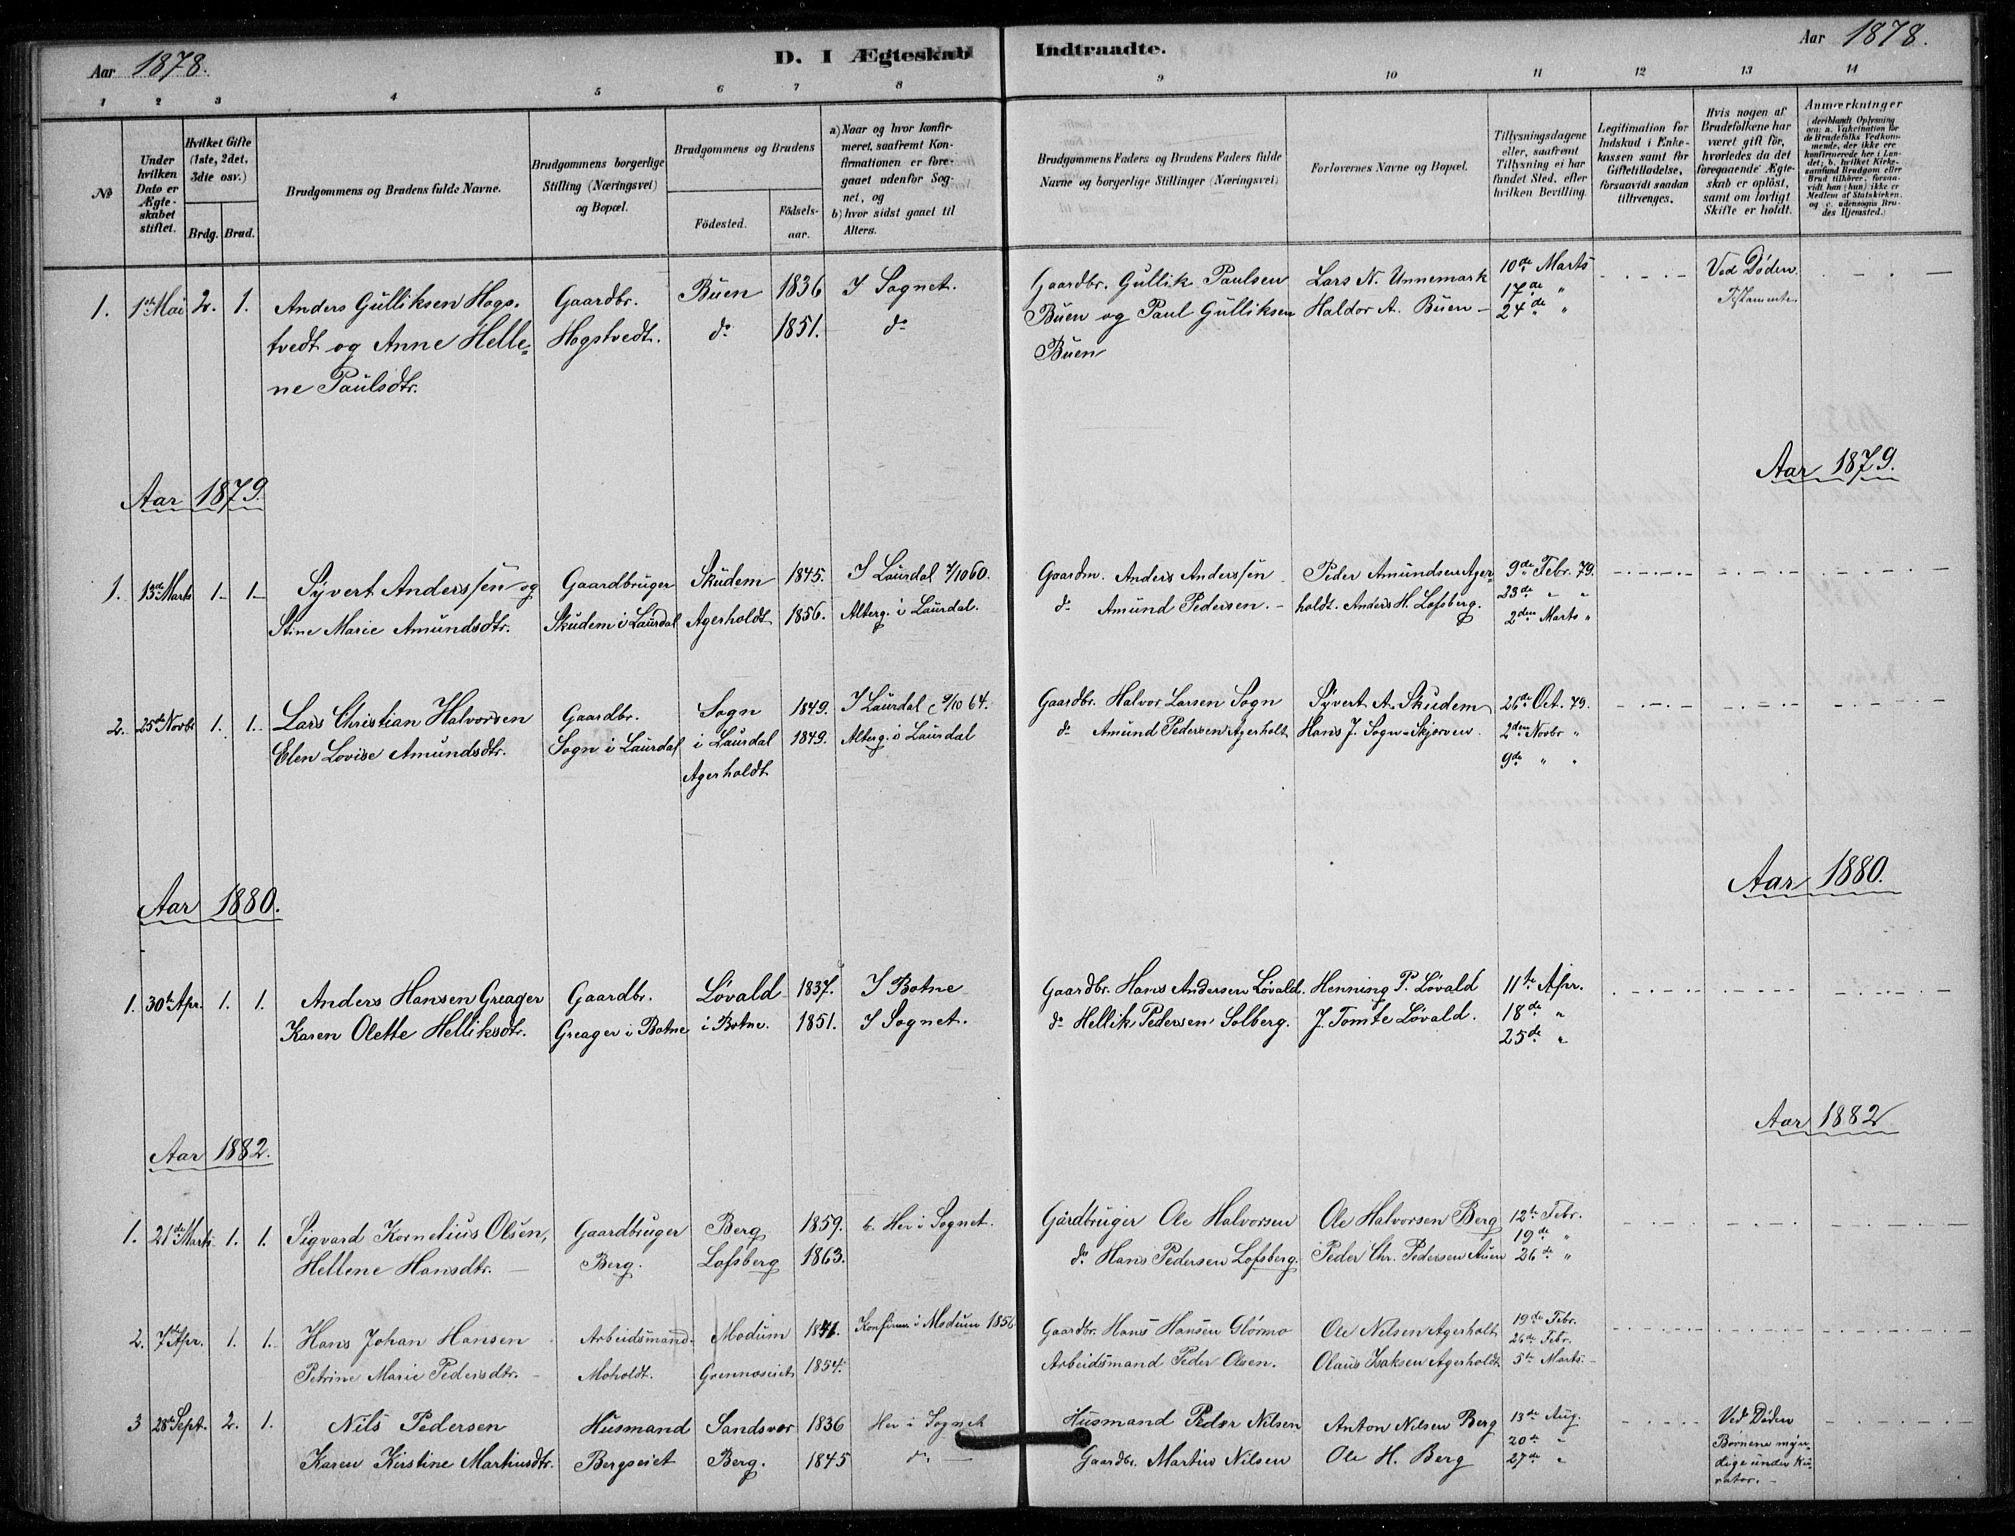 Aar 1878.
D. I Ægteskab Indtraadte.
Aar 1878.
1 2 3 4 5 6 7 8 9 10 11 12 13 14
No
Under hvilken Dato er Ægteskabet stiftet.
Hvilket Gifte (1ste, 2det, 3die osv.)
Brdg. Brud.
Brudgommens og Brudens fulde Navne.
Brudgommens borgerlige Stilling (Næringsvei) og Bopæl.
Brudgommens og Brudens
Fødested.
Fødselsaar.
a) Naar og hvor konfirmeret, saafremt Konfirmationen er foregaaet udenfor Sognet, og
b) hvor sidst gaaet til Alters.
Brudgommens Faders og Brudens Faders fulde Navne og borgerlige Stillinger (Næringsvei)
Forlovernes Navne og Bopæl.
Tillysningsdagene eller, saafremt Tillysning ei har fundet Sted, efter hvilken Bevilling.
Legitimation for Indskud i Enkekassen samt for Giftetilladelse, forsaavidt saadan tiltrænges.
Hvis nogen af Brudefolkene har været gift før, hvorledes da det foregaaende Ægteskab er opløst, samt om lovligt Skifte er holdt.
Anmærkninger (deriblandt Oplysning om: a. Vakcination for de Brudefolks Vedkommende, der ikke ere konfirmerede her i Landet; b. hvilket Kirkesamfund Brudgom eller Brud tilhører, forsaavidt han (hun) ikke er Medlem af Statskirken, og c. udensogns Brudes Hjemsted.)
1. 1ste Mai 2. 1. Anders Gulliksen Hogs- Gaardbr. Buen 1836 I Sognet. Gaardbr. Gullik Paulsen Lars N. Unnemark 10de Marts Ved Døden.
tvedt og Anne Helle- Hogstvedt. do 1851. do Buen og Paul Gulliksen Haldor A. Buen 17de " Testamente.
ne Paulsdtr. Buen 24de "
Aar 1879. Aar 1879.
1. 13de Marts 1. 1. Syvert Anderssen og Gaardbruger Skudem 1845. I Laurdal 7/10 60. Gaardm. Anders Anderssen Peder Amundsen Ager- 9de Febr. 79.
Stine Marie Amundsdtr. Skudem i Laurdal Agerholdt 1856. Alterg. i Laurdal. do Amund Pedersen. holdt. Anders H. Lofsberg. 23de " "
2den Marts "
2. 25de Novbr 1. 1. Lars Christian Halvorsen Gaardbr. Sogn 1849. I Laurdal 9/10 64. Gaardbr. Halvor Larsen Sogn Syvert A. Skudem 26de Oct. 79.
Elen Lovise Amundsdtr. Sogn i Laurdal i Laurdal 1849. Alterg. i Laurdal do Amund Pedersen Agerholt Hans J. Sogn-Skjorven. 2den Novbr "
Agerholdt 9de " "
Aar 1880. Aar 1880.
1. 30te Apr. 1. 1. Anders Hansen Greager Gaardbr. Løvald 1837. I Botne Gaardbr. Hans Andersen Løvald. Henning P. Løvald 11te Apr.
Karen Olette Helliksdtr. Greager i Botne i Botne. 1851. I Sognet. do Hellik Pedersen Solberg. J. Tomte Løvald. 18de "
25de "
Aar 1882. Aar 1882
1. 21de Marts 1. 1. Sigvard Kornelius Olsen, Gaardbruger Berg 1859. b. Her i Sognet. Gårdbruger Ole Halvorsen Ole Halvorsen Berg 12te Febr.
Hellene Hansdtr. Berg. Lofsberg 1863. do Hans Pedersen Lofsberg. Peder Chr. Pedersen Auen 19de "
26de "
2. 7de Apr. 1. 1. Hans Johan Hansen Arbeidsmand. Modum 1841. Konfirm. i Modum 1856 Gaardbr. Hans Hansen Glørmo Ole Nilsen Agerholt 19de Febr.
Petrine Marie Pedersdtr. Moholdt. Grennoseiet 1854. Arbeidsmand Peder Olsen. Olaus Isaksen Agerholdt 26de Febr.
5te Marts.
3 28de Sept. 2. 1. Nils Pedersen Husmand Sandsvær 1836 Her i Sognet Husmand Peder Nilsen Anton Nilsen Berg 13de Aug. Ved Døden
Karen Kirstine Martinsdtr. Bergseiet Berg. 1845 do Gaardbr. Martin Nilsen Ole H. Berg 20de " Børnene myn-
27de " dige under Ku-
rator.